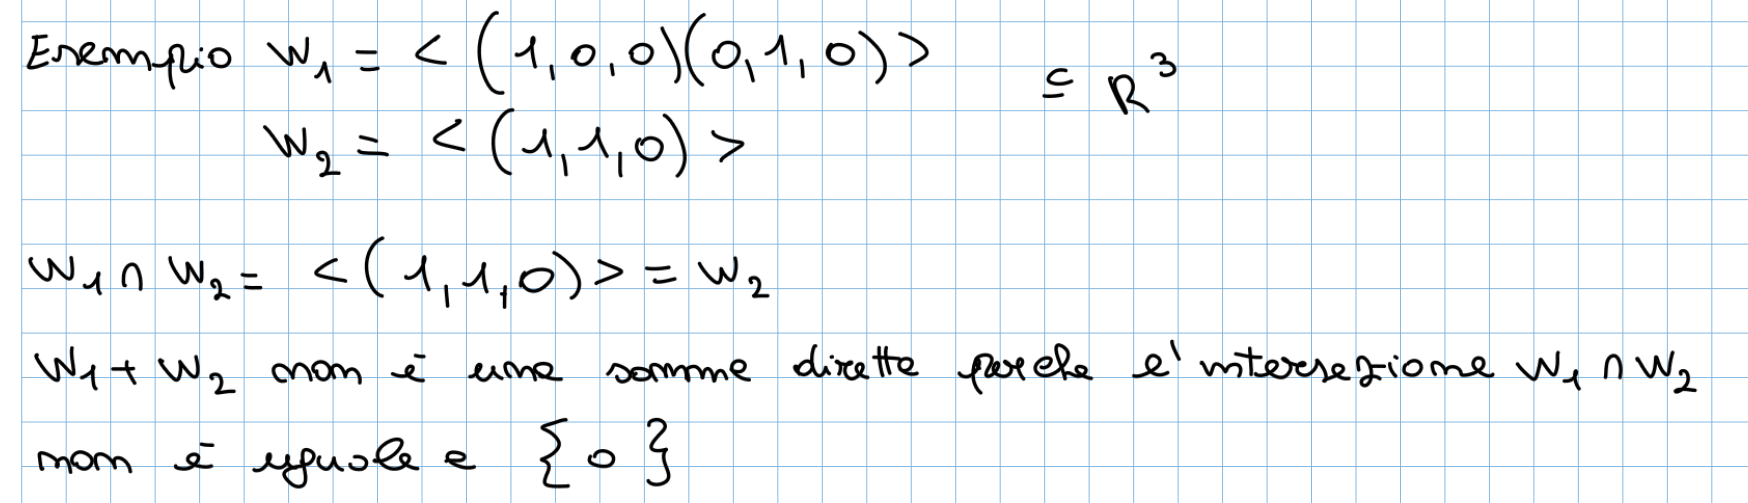 Esempio W₁ = < (1,0,0)(0,1,0) > ⊆ R³
W₂ = < (1,1,0) >
W₁ ∩ W₂ = < (1,1,0) > = W₂
W₁ + W₂ non è una somma diretta perche l'intersezione W₁ ∩ W₂
non è uguale a {0}